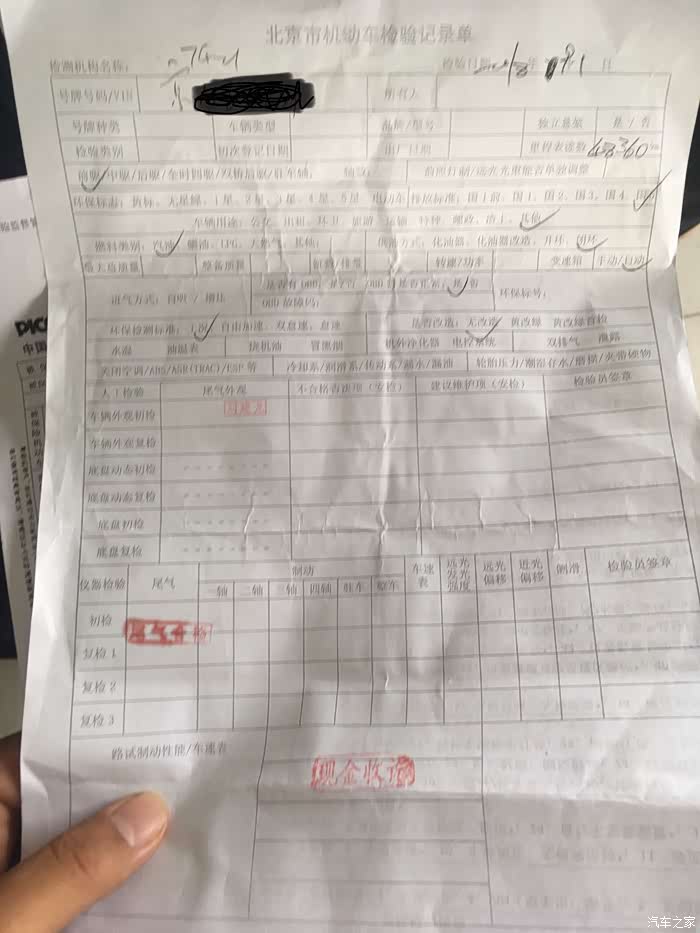 北京市机动车检验记录单
检测机构名称： 检验日期 年 月 日
号牌号码/VIN 所有人
号牌种类 车辆类型 品牌/型号 独立悬架 是/否
检验类别 初次登记日期 出厂日期 里程表读数
前驱/中驱/后驱/全时四驱/双桥后驱/驻车轴： 轴数： 前照灯制/远光光束能否单独调整
车辆用途：公交、出租、环卫、旅游、运输、特种、邮政、渣土、其他
燃料类别：汽油、柴油、LPG、天然气、其他： 供油方式：化油器、化油器改造、开环、闭环
最大总质量 整备质量 缸数/排量 转速/功率 变速箱 手动/自动
进气方式：自吸/增压 OBD故障码： 环保标号：
环保检测标准： 自由加速、双怠速、怠速 是否改造：无改造 黄改绿 黄改绿首检
水温 油温表 烧机油 冒黑烟 机外净化器 电控系统 双排气 泄露
关闭空调/ABS/ASR(TRAC)/ESP等 冷却系/润滑系/传动系/漏水/漏油 轮胎压力/潮湿存水/磨损/夹带硬物
人工检验 尾气外观 不合格否决项（安检） 建议维护项（安检） 检验员签章
车辆外观初检
车辆外观复检
底盘动态初检
底盘动态复检
底盘初检
底盘复检
仪器检验 尾气 制动 车速表 远光发光强度 远光偏移 近光偏移 侧滑 检验员签章
一轴 二轴 三轴 四轴 驻车 整车
初检
复检1
复检2
复检3
路试制动性能/车速表
现金收讫
汽车之家